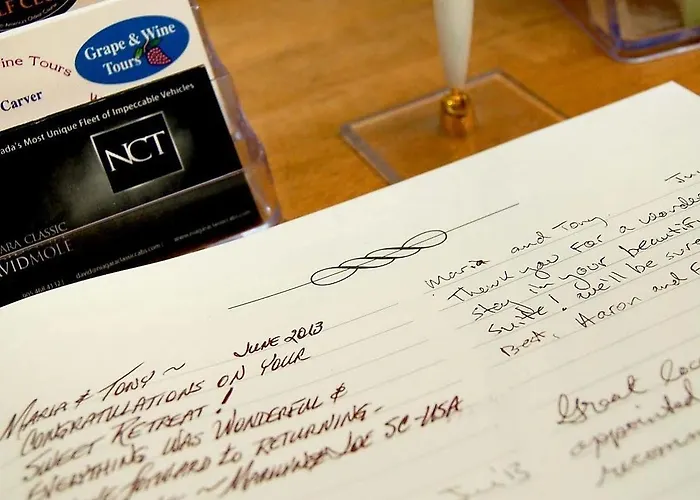 F CL
Grape & Wine
Tours
ine Tours
Carver
ada's Most Unique Fleet of Impeccable Vehicles
NCT
ARA CLASSIC
VIDMOLE
905.468.4132
david@niagaraclassiccabs.com
www.niagaraclassiccabs.com
MARIA & TONY ~ JUNE 2013
CONGRATULATIONS ON YOUR
SWEET RETREAT!
EVERYTHING WAS WONDERFUL &
FORWARD TO RETURNING -
JOE SC-USA
Maria and Tony
Thank you for a wonder
stay in your beautif
suite! We'll be sure
Best, Aaron and
Great loc
appointed
recom
Jun '13